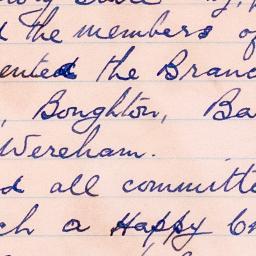 d the members of
ented the Branc
, Boughton, Ba
Wereham.
d all committe
ch a Happy